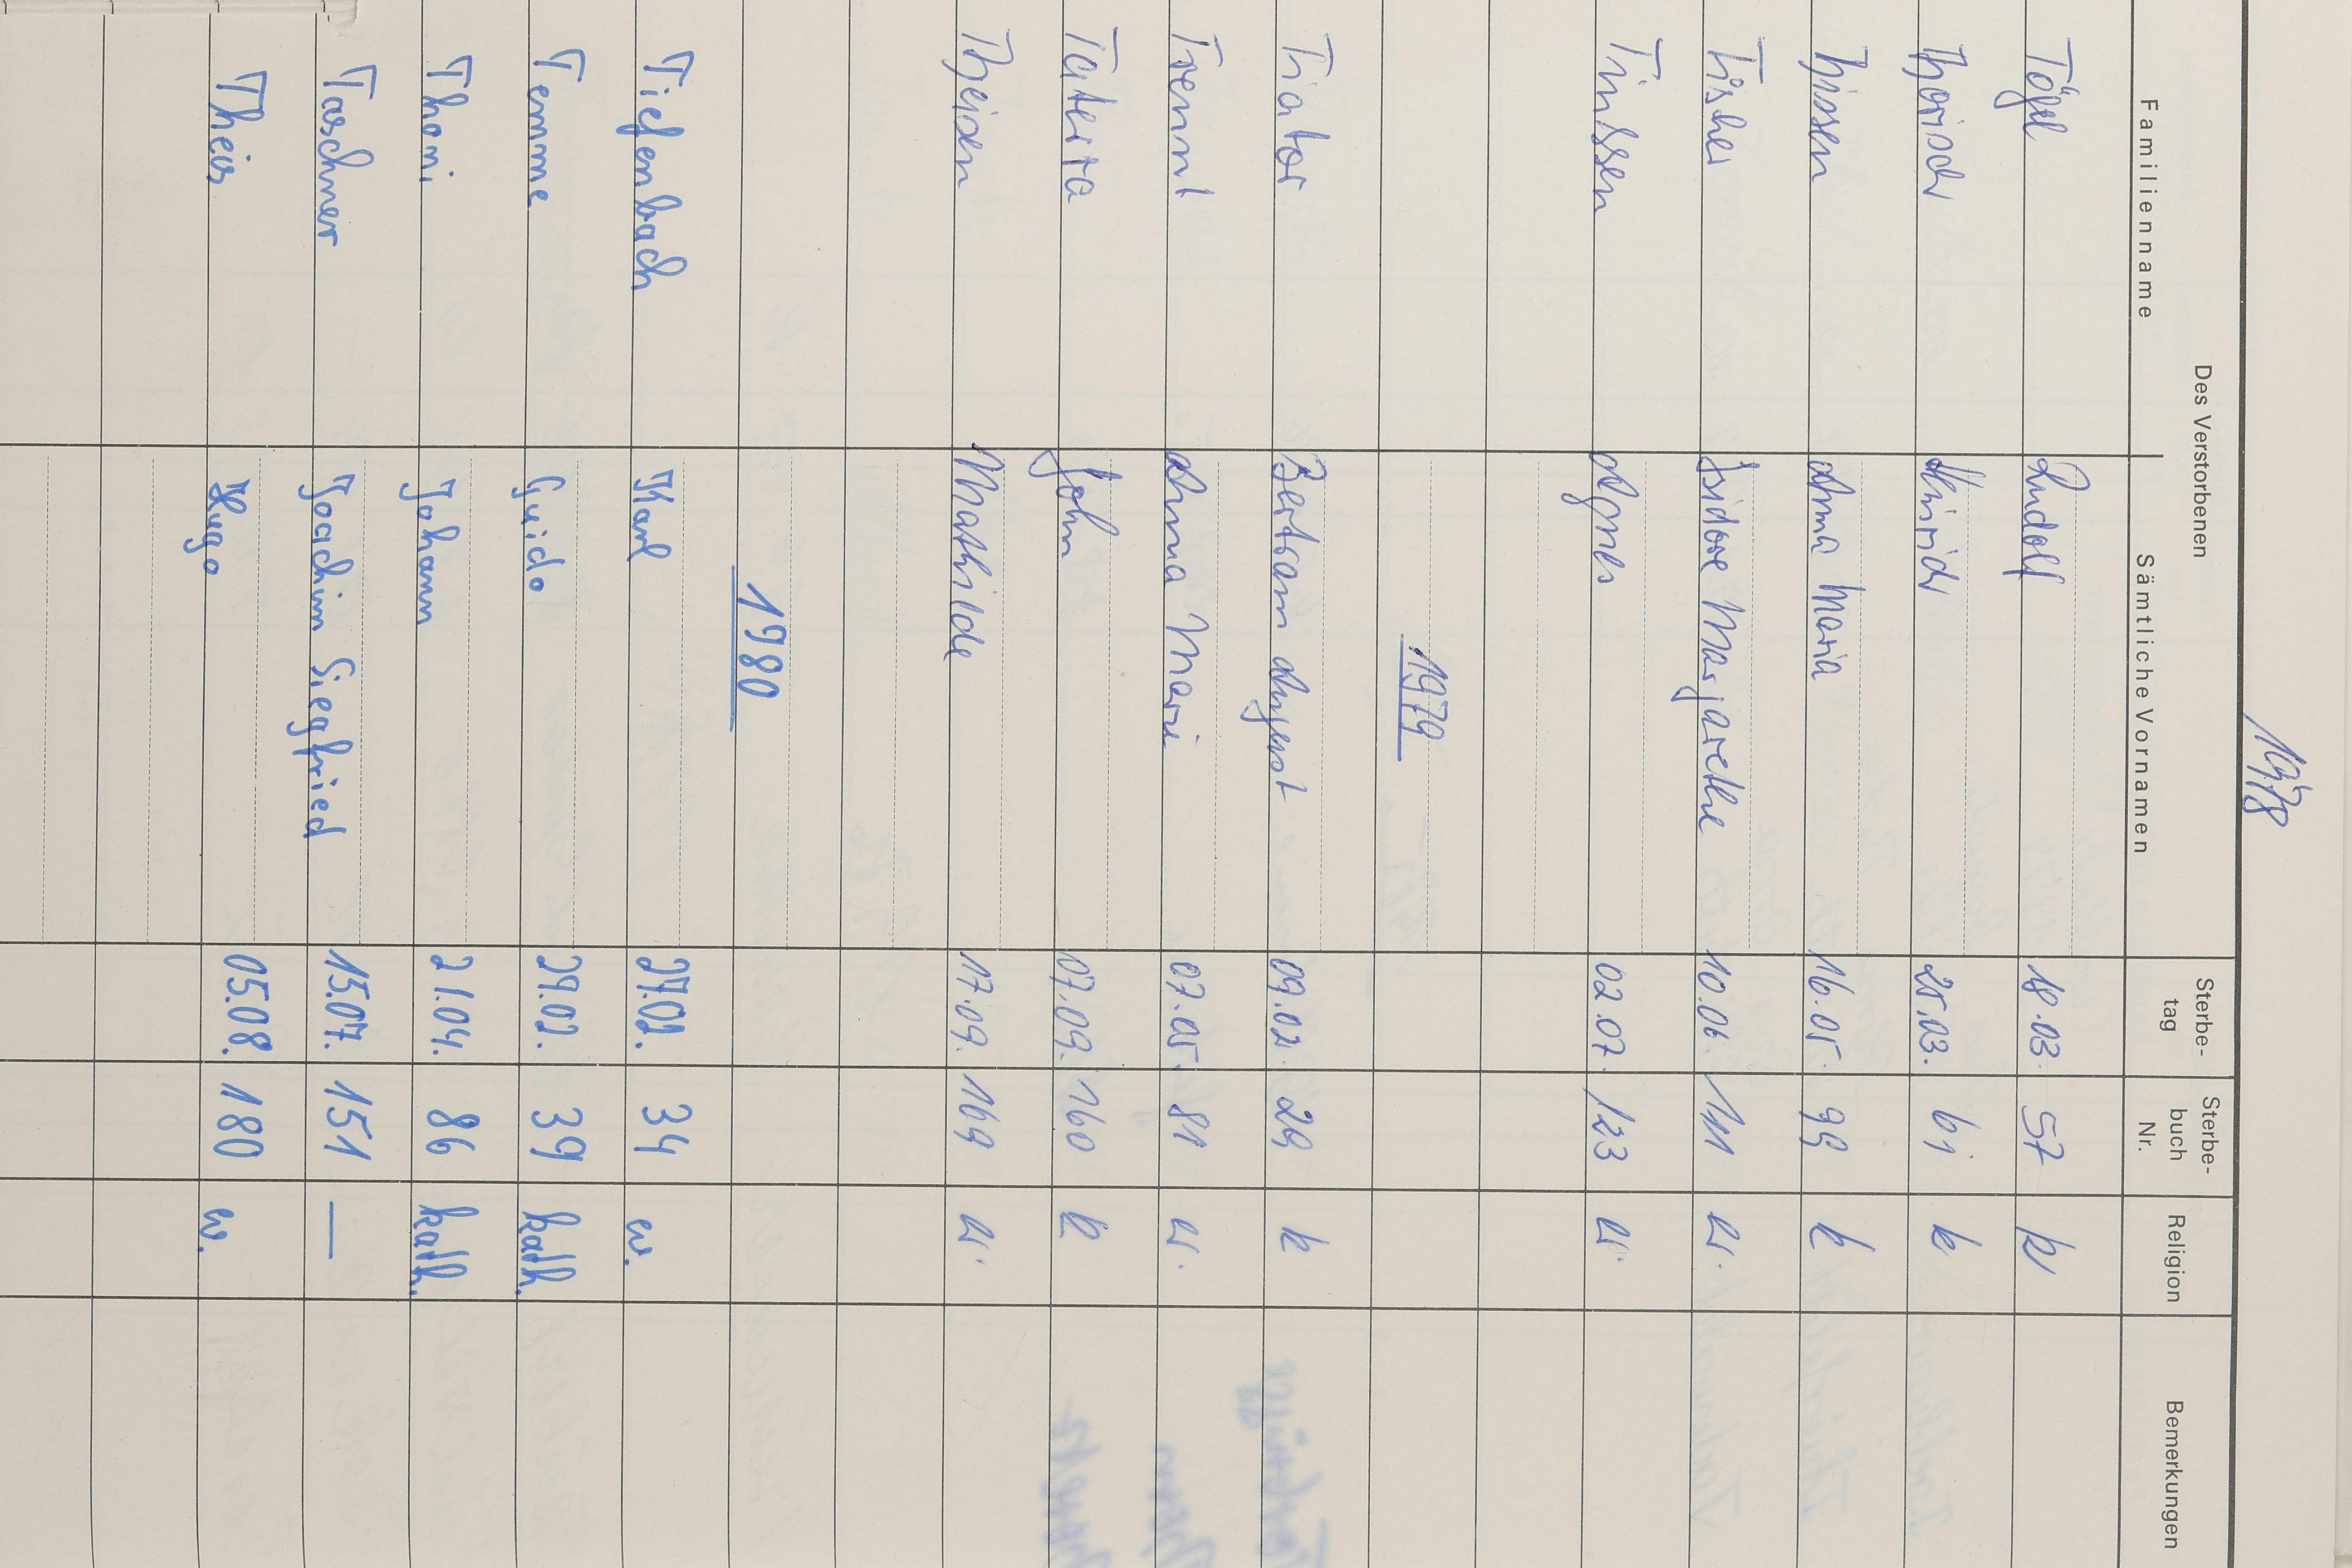 1978
Des Verstorbenen
Familienname Sämtliche Vornamen Sterbe-tag Sterbe-buch Nr. Religion Bemerkungen
Tögel Rudolf 18.03. 57 k
Heinrich 25.03. 61 k
Thissen Anna Maria 16.05. 99 k
Tischer Isidore Margarethe 10.06. 111 ev.
Tinissen Agnes 02.07. 123 ev.
1979
Triator Bertram August 09.02. 29 k
Trennt Anna Marie 07.05. 81 ev.
Tatera John 07.09. 160 k
Theisen Mathilde 17.09. 169 ev.
1980
Tiefenbach Karl 27.02. 34 ev.
Temme Guido 29.02. 39 kath.
Thoni Johann 21.04. 86 kath.
Taschner Joachim Siegfried 15.07. 151 —
Theis Hugo 05.08. 180 ev.